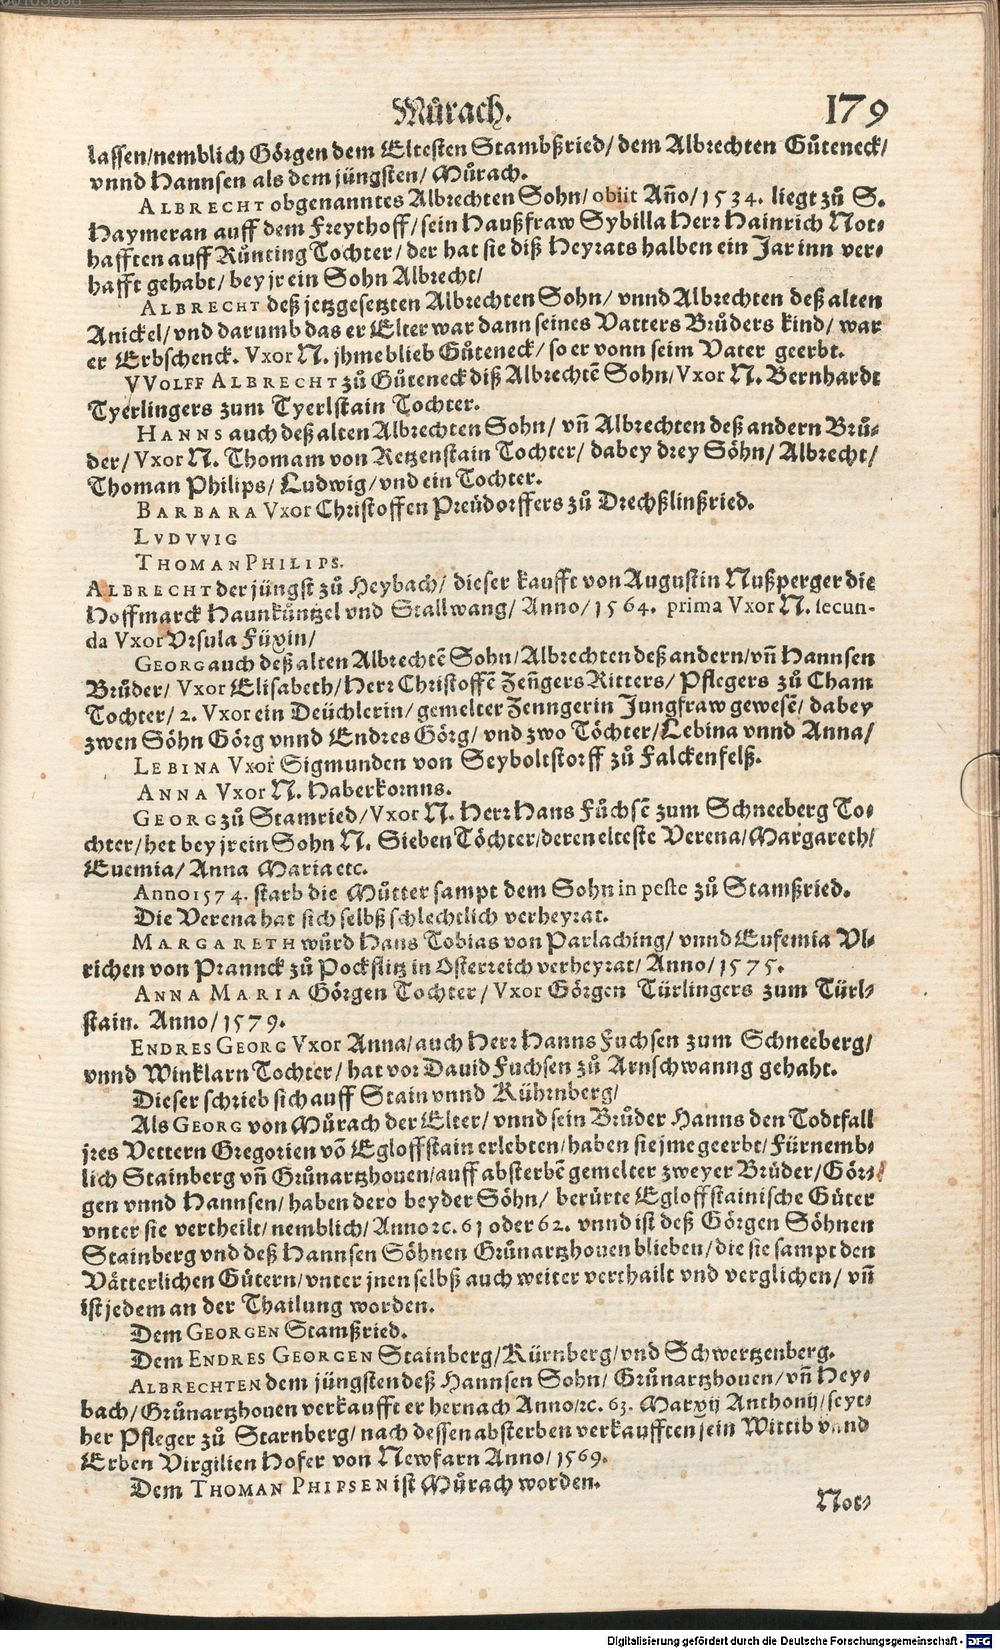 Můrach. 179
lassen/nemblich Görgen dem Eltesten Stambßried/ dem Albrechten Gůteneck/
vnnd Hannsen als dem jüngsten/ Můrach.
ALBRECHT obgenanntes Albrechten Sohn/ obiit Año/1534. liegt zů S.
Haymeran auff dem Freythoff/ sein Haußfraw Sybilla Herr Hainrich Not-
hafften auff Růnting Tochter/ der hat sie diß Heyrats halben ein Jar inn ver-
hafft gehabt/ bey jr ein Sohn Albrecht/
ALBRECHT deß jetzgesetzten Albrechten Sohn/ vnnd Albrechten deß alten
Anickel/ vnd darumb das er Elter war dann seines Vatters Brůders kind/ war
er Erbschenck. Vxor N. jhme blieb Gůteneck/ so er vonn seim Vater geerbt.
VVOLFF ALBRECHT zů Gůteneck diß Albrechtẽ Sohn/ Vxor N. Bernhardt
Tyerlingers zum Tyerlstain Tochter.
HANNS auch deß alten Albrechten Sohn/ vñ Albrechten deß andern Brů-
der/ Vxor N. Thomam von Retzenstain Tochter/ dabey drey Söhn/ Albrecht/
Thoman Philips/ Ludwig/ vnd ein Tochter.
BARBARA Vxor Christoffen Preüdorffers zů Drechßlinßried.
LVDVVIG
THOMAN PHILIPS.
ALBRECHT der jüngst zů Heybach/ dieser kaufft von Augustin Nußperger die
Hoffmarck Haunkůntzel vnd Stallwang/ Anno/1564. prima Vxor N. secun-
da Vxor Vrsula Füxin/
GEORG auch deß alten Albrechtẽ Sohn/ Albrechten deß andern/ vñ Hannsen
Brůder/ Vxor Elisabeth/ Herr Christoffẽ Zeñgers Ritters/ Pflegers zů Cham
Tochter/ 2. Vxor ein Deüchlerin/ gemelter Zenngerin Jungfraw gewesẽ/ dabey
zwen Söhn Görg vnnd Endres Görg/ vnd zwo Töchter/ Lebina vnnd Anna/
LEBINA Vxor Sigmunden von Seyboltstorff zů Falckenfelß.
ANNA Vxor N. Haberkorns.
GEORG zů Stamried/ Vxor N. Herr Hans Fůchsẽ zum Schneeberg To-
chter/ het bey jr ein Sohn N. Sieben Töchter/ deren elteste Verena/ Margareth/
Euemia/ Anna Maria etc.
Anno 1574. starb die Můtter sampt dem Sohn in peste zů Stamßried.
Die Verena hat sich selbß schlechtlich verheyrat.
MARGARETH würd Hans Tobias von Parlaching/ vnnd Eufemia Vl-
richen von Pranck zů Pockflitz in Osterreich verheyrat/ Anno/1575.
ANNA MARIA Görgen Tochter/ Vxor Görgen Türlingers zum Türl-
stain. Anno/1579.
ENDRES GEORG Vxor Anna/ auch Herr Hanns Fuchsen zum Schneeberg/
vnnd Winklarn Tochter/ hat vor Dauid Fuchsen zů Arnschwanng gehabt.
Dieser schrieb sich auff Stain vnnd Kührnberg/
Als GEORG von Můrach der Elter/ vnnd sein Brůder Hanns den Todtfall
jres Vettern Gregorien võ Egloffstain erlebten/ haben sie jme geerbt/ Fürnemb-
lich Stainberg vñ Grůnartzhouen/ auff absterbẽ gemelter zweyer Brüder/ Gör-
gen vnnd Hannsen/ haben dero beyder Söhn/ berürte Egloffstainische Güter
vnter sie vertheilt/ nemblich/ Anno ꝛc. 61 oder 62. vnnd ist deß Görgen Söhnen
Stainberg vnd deß Hannsen Söhnen Grůnartzhouen blieben/ die sie sampt den
Vätterlichen Gütern/ vnter jnen selbß auch weiter verthailt vnd verglichen/ vñ
ist jedem an der Thailung worden.
Dem GEORGEN Stamßried.
Dem ENDRES GEORGEN Stainberg/ Kürnberg/ vnd Schwertzenberg.
ALBRECHTEN dem jüngsten deß Hannsen Sohn/ Grůnartzhouen/ vñ Hey-
bach/ Grůnartzhouen verkaufft er hernach Anno/ꝛc. 63. Marxij Anthonij/ seyt-
her Pfleger zů Starnberg/ nach dessen absterben verkaufften sein Wittib vnnd
Erben Virgilien Hofer von Newfarn Anno/1569.
Dem THOMAN PHIPSEN ist Můrach worden.
Not-
Digitalisierung gefördert durch die Deutsche Forschungsgemeinschaft - DFG